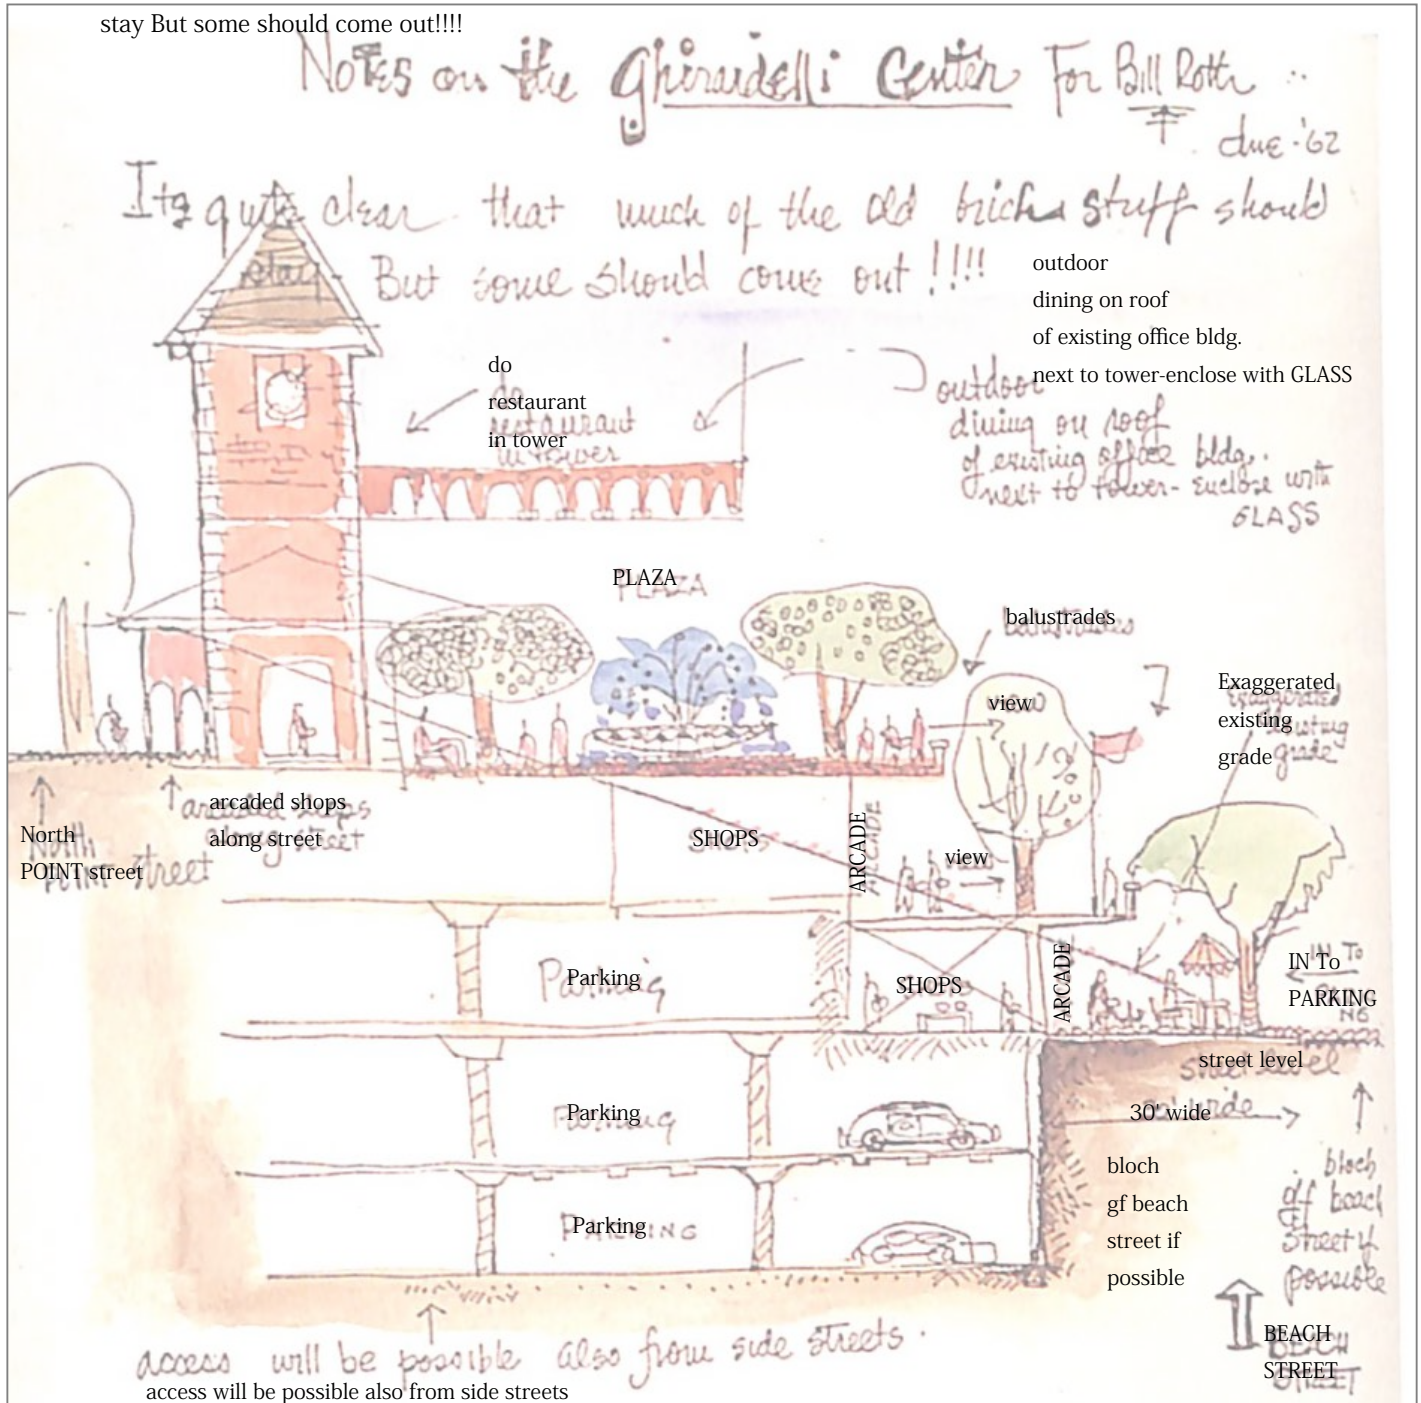 stay But some should come out!!!!
Notes on the Ghirardelli Center For Bill Roth
'62
Its quite clear that much of the old brick stuff should
stay But some should come out !!!!
outdoor
dining on roof
of existing office bldg.
next to tower-enclose with GLASS
do
restaurant
in tower
do
restaurant
in tower
outdoor
dining on roof
of existing office bldg.
next to tower- enclose with
GLASS
PLAZA
PLAZA
balustrades
balustrades
view
view
Exaggerated
existing
grade
Exaggerated
existing
grade
arcaded shops
along street
arcaded shops
along street
North
POINT street
North
POINT street
SHOPS
SHOPS
ARCADE
ARCADE
view
view
Parking
Parking
SHOPS
SHOPS
ARCADE
ARCADE
IN To
PARKING
IN To
street level
street level
Parking
Parking
30' wide
30' wide
bloch
gf beach
street if
possible
bloch
gf beach
street if
possible
Parking
PARKING
BEACH
STREET
BEACH
STREET
access will be possible also from side streets.
access will be possible also from side streets